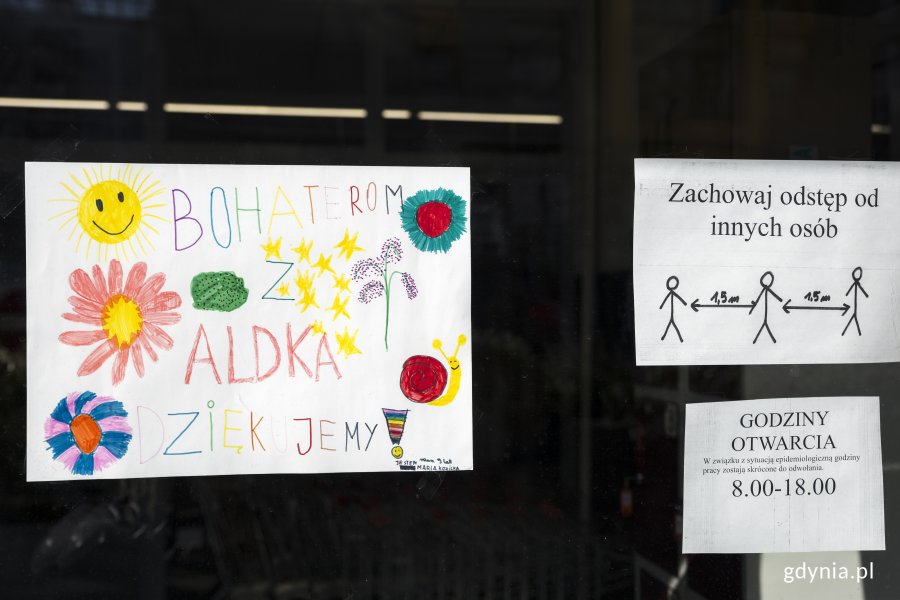 BOHATEROM
Z
ALDKA
DZIĘKUJEMY!
JESTEM mam 9 lat
MARIA
Zachowaj odstęp od
innych osób
1,5m 1,5m
GODZINY
OTWARCIA
W związku z sytuacją epidemiologiczną godziny
pracy zostają skrócone do odwołania.
8.00-18.00
gdynia.pl